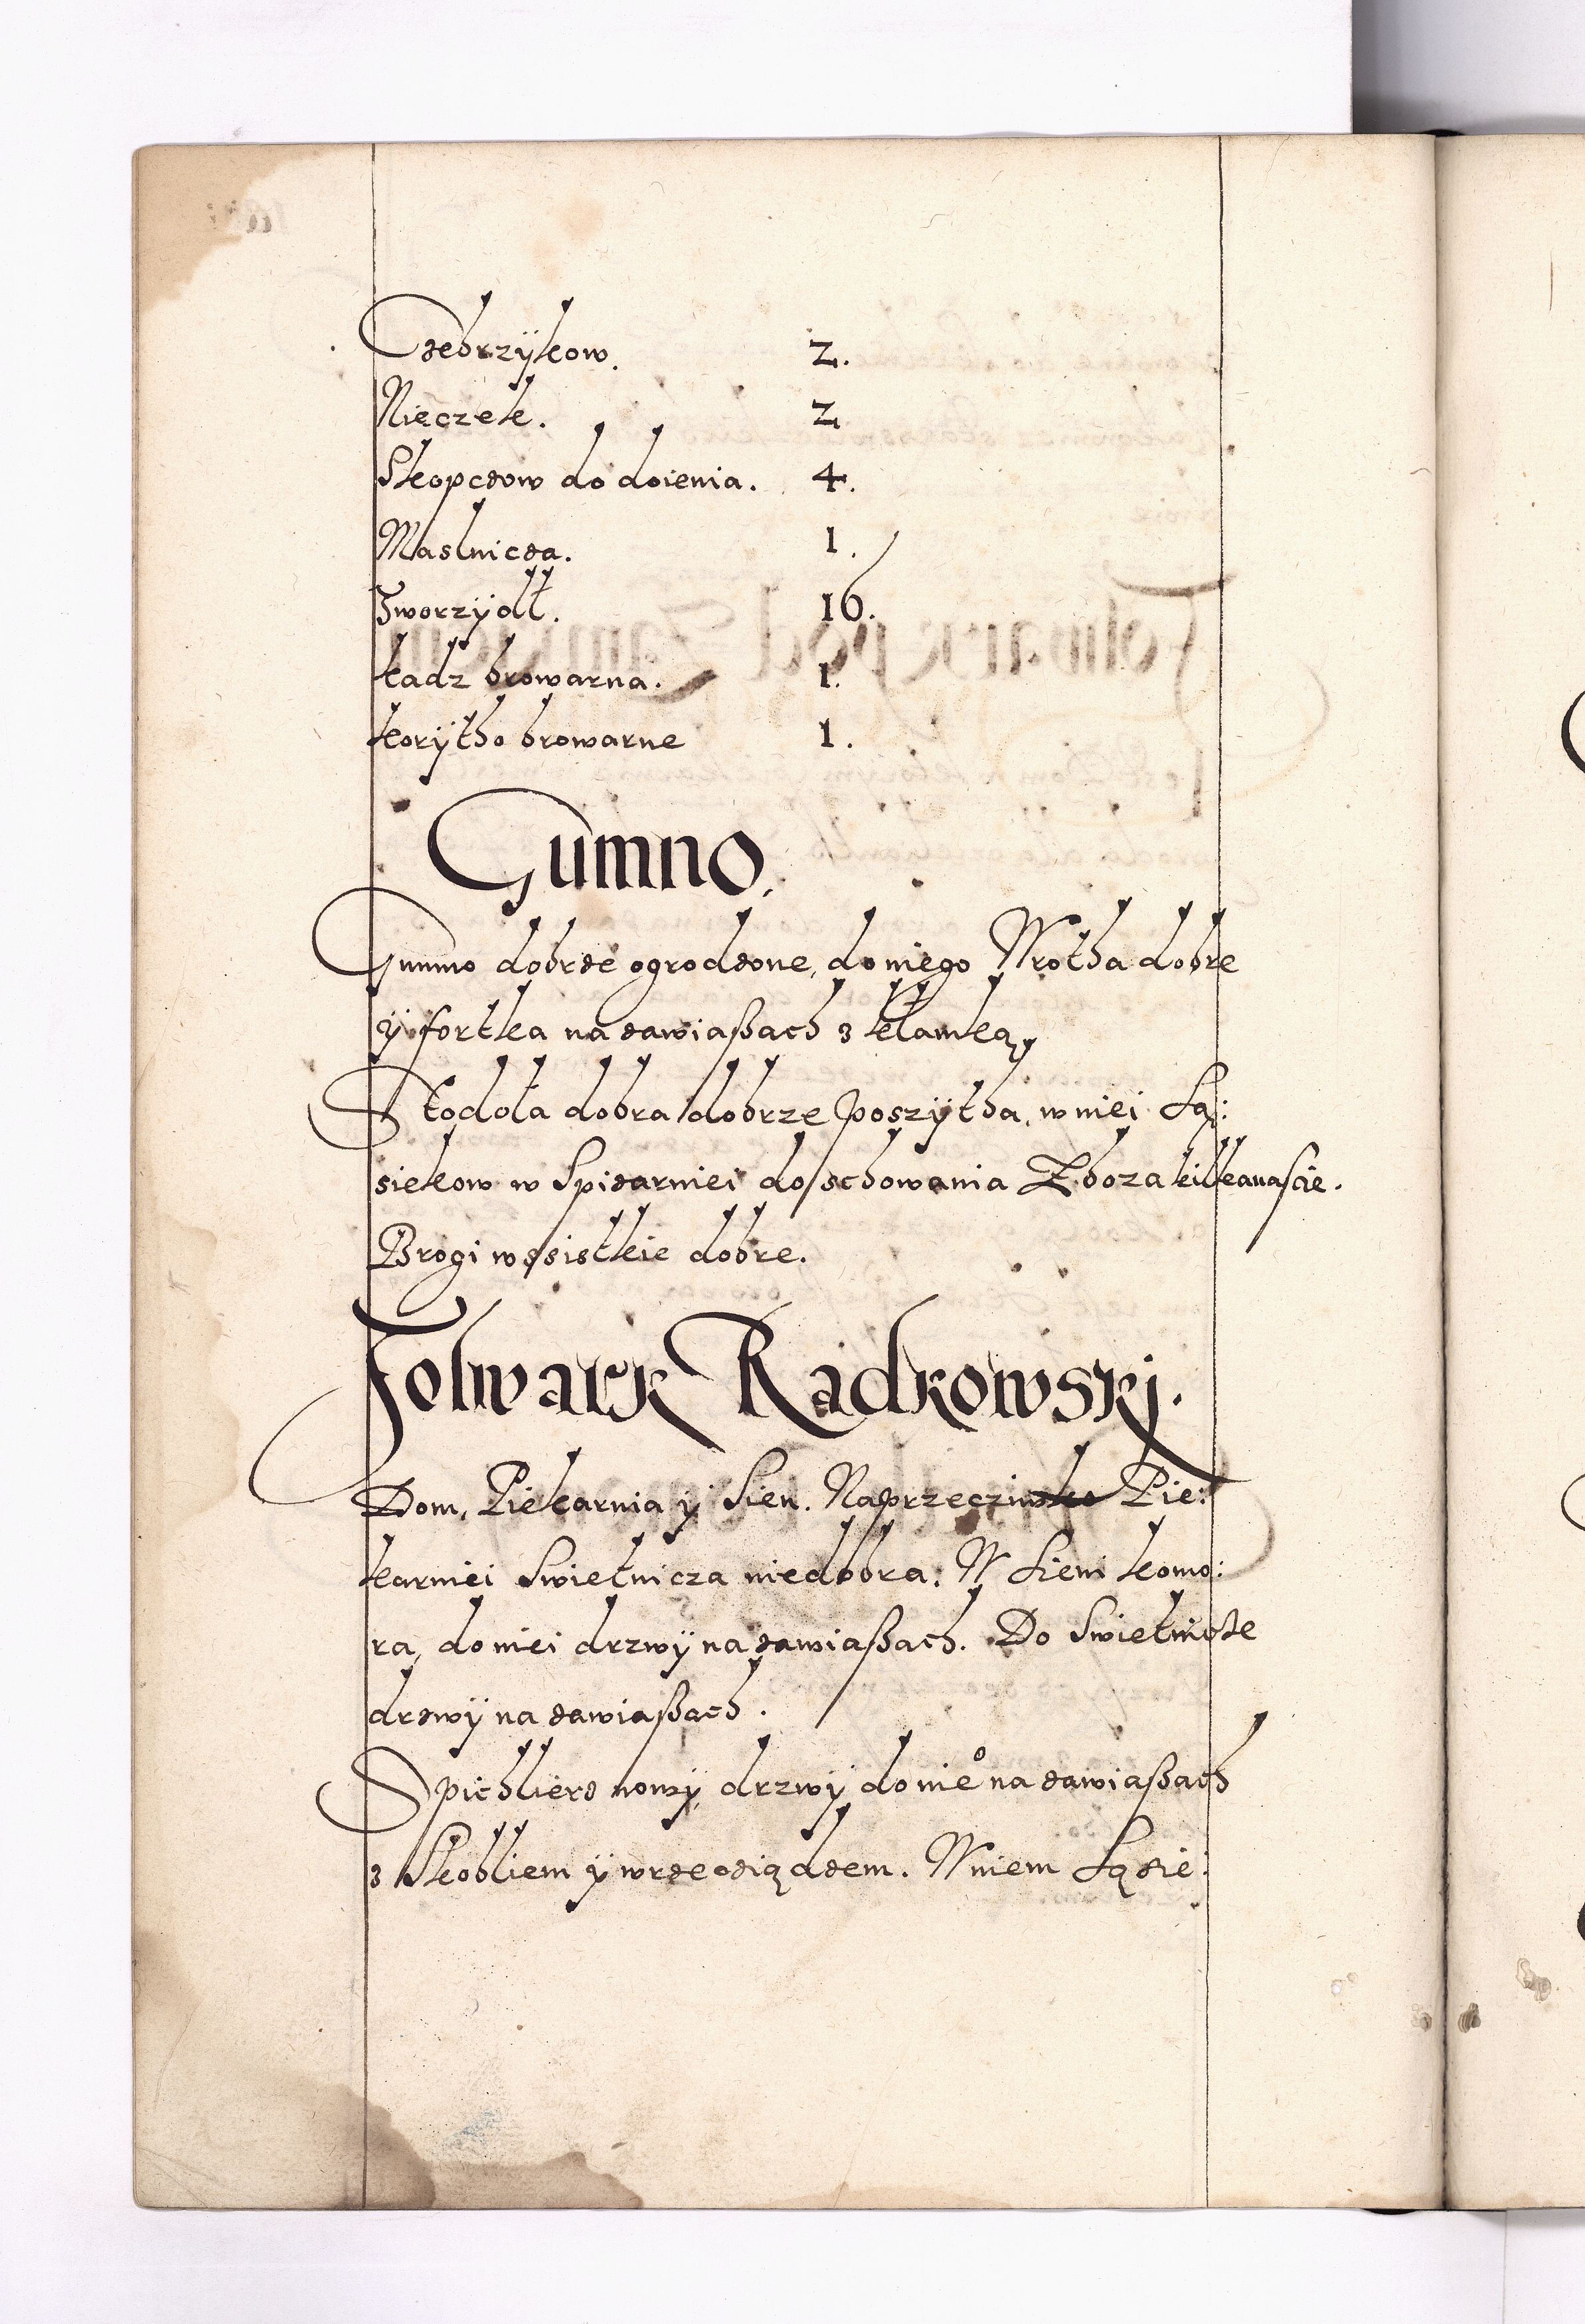 Czebrzÿkow. 2.
Nieczek. 2
Skopczow do doienia. 4.
Maslnicza. 1.
Tworzÿdł. 16.
Kadz browarna. 1.
Korÿtho browarne 1.
Gumno,
Gumno dobrze ogrodzone, do niego Wrotha dobre
ÿ fortka na zawiaßach z klamką,
Stodoła dobra dobrze poszÿtha, w niej Są:
siekow w Spizarniei do schowania Zboza kilkanascie.
Brogi wssistkie dobre.
Folwark Radkowski.
Dom, Piekarnia ÿ Sien. Naprzeciw Pie:
karniei Swietnicza niedobra. W Sieni komo:
ra, do niei drzwÿ na zawiaßach. Do Swietnicze
drzwÿ na zawiaßach.
Spichlierz nowÿ, drzwÿ do nie° na zawiaßach
z Skobliem ÿ wrzecziądzem. W niem Sąsie: